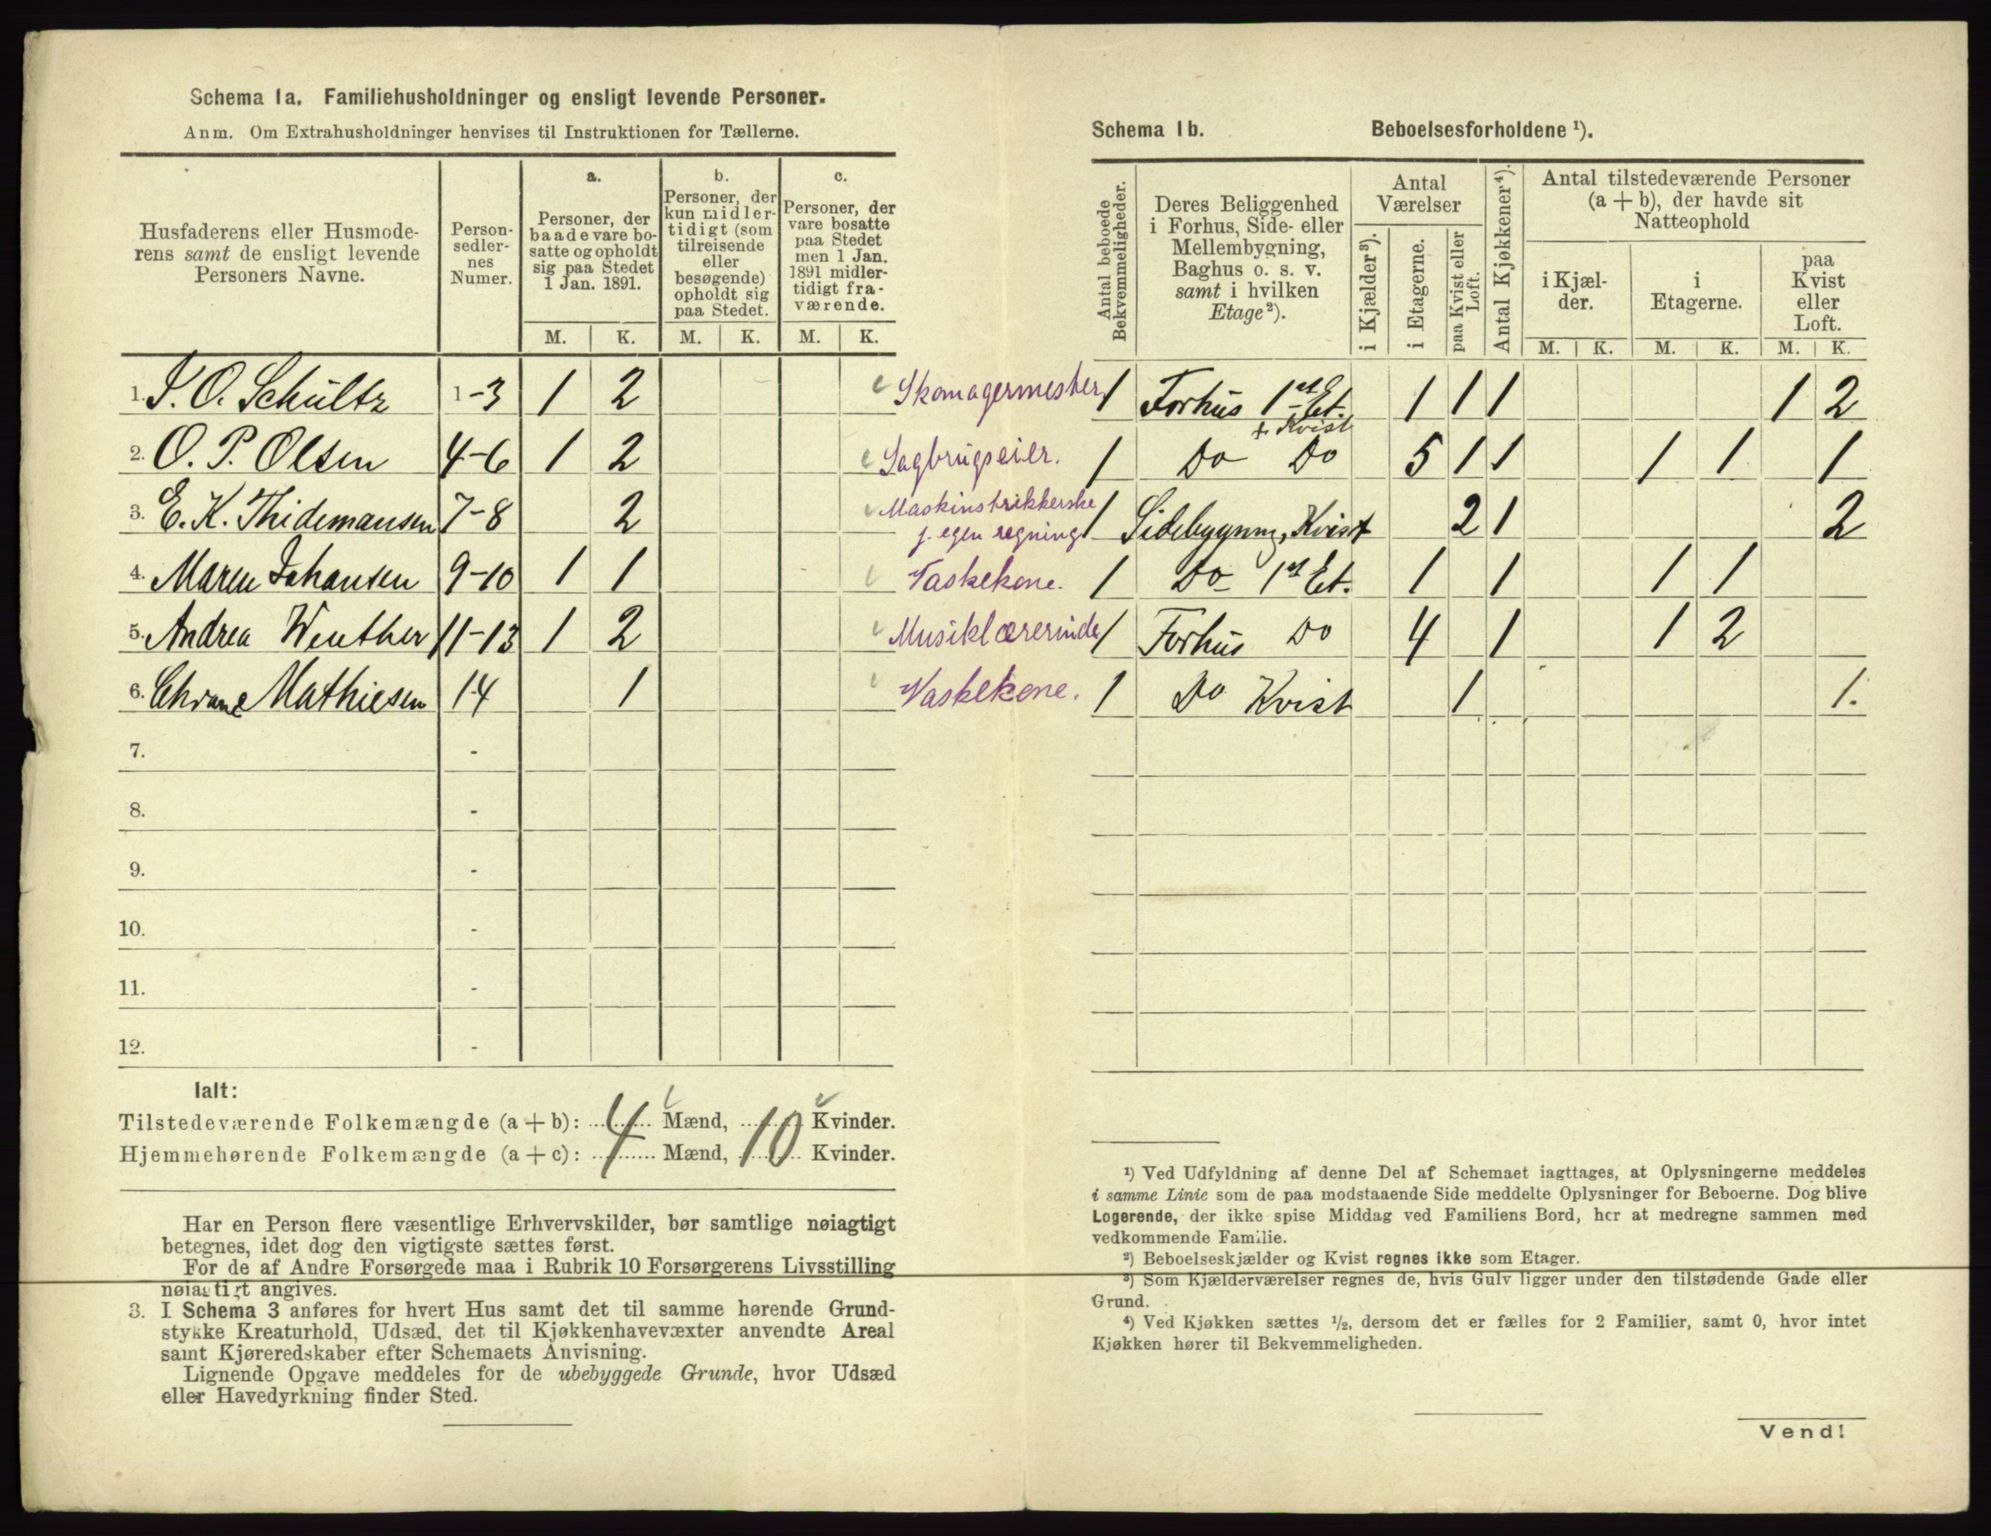 Schema 1a. Familiehusholdninger og ensligt levende Personer.
Anm. Om Extrahusholdninger henvises til Instruktionen for Tællerne.
Husfaderens eller Husmode-
rens samt de ensligt levende
Personers Navne.
Person-
sedler-
nes
Numer.
a.
Personer, der
baade vare bo-
satte og opholdt
sig paa Stedet
1 Jan. 1891.
b.
Personer, der
kun midler-
tidigt (som
tilreisende
eller
besøgende)
opholdt sig
paa Stedet.
c.
Personer, der
vare bosatte
paa Stedet
men 1 Jan.
1891 midler-
tidigt fra-
værende.
M. K. M. K. M. K.
1. J. O. Schültz 1-3 1 2 Skomagermester
2. O. P. Olsen 4-6 1 2 Sagbrugseier.
3. E. K. Thidemansen 7-8 2 Maskinstrikkerske
f. egen regning
4. Maren Johansen 9-10 1 1 Vaskekone.
5. Andrea Winther 11-13 1 2 Musiklærerinde
6. Chrane Mathiesen 14 1 Vaskekone.
7. -
8. -
9. -
10. -
11. -
12. -
Ialt:
Tilstedeværende Folkemængde (a + b): 4 Mænd, 10 Kvinder.
Hjemmehørende Folkemængde (a + c): Mænd, Kvinder.
Har en Person flere væsentlige Erhvervskilder, bør samtlige nøiagtigt
betegnes, idet dog den vigtigste sættes først.
For de af Andre Forsørgede maa i Rubrik 10 Forsørgerens Livsstilling
nøiagtigt angives.
3. I Schema 3 anføres for hvert Hus samt det til samme hørende Grund-
stykke Kreaturhold, Udsæd, det til Kjøkkenhavevæxter anvendte Areal
samt Kjøreredskaber efter Schemaets Anvisning.
Lignende Opgave meddeles for de ubebyggede Grunde, hvor Udsæd
eller Havedyrkning finder Sted.
Schema 1b. Beboelsesforholdene ¹).
Antal beboede
Bekvemmeligheder.
Deres Beliggenhed
i Forhus, Side- eller
Mellembygning,
Baghus o. s. v.
samt i hvilken
Etage²).
Antal
Værelser
i Kjælder³).
i Etagerne.
paa Kvist eller
Loft.
Antal Kjøkkener⁴).
Antal tilstedeværende Personer
(a + b), der havde sit
Natteophold
i Kjæl-
der.
i
Etagerne.
paa
Kvist
eller
Loft.
M. K. M. K. M. K.
1 Forhus 1st Et. 1 1 1 1 2
+ Kvist
1 Do Do 5 1 1 1 1 1
1 Sidebygning, Kvist 2 1 2
1 Do 1st Et. 1 1 1 1
1 Forhus Do 4 1 1 2
1 Do Kvist 1 1.
¹) Ved Udfyldning af denne Del af Schemaet iagttages, at Oplysningerne meddeles
i samme Linie som de paa modstaaende Side meddelte Oplysninger for Beboerne. Dog blive
Logerende, der ikke spise Middag ved Familiens Bord, her at medregne sammen med
vedkommende Familie.
²) Beboelseskjælder og Kvist regnes ikke som Etager.
³) Som Kjælderværelser regnes de, hvis Gulv ligger under den tilstødende Gade eller
Grund.
⁴) Ved Kjøkken sættes ½, dersom det er fælles for 2 Familier, samt 0, hvor intet
Kjøkken hører til Bekvemmeligheden.
Vend!